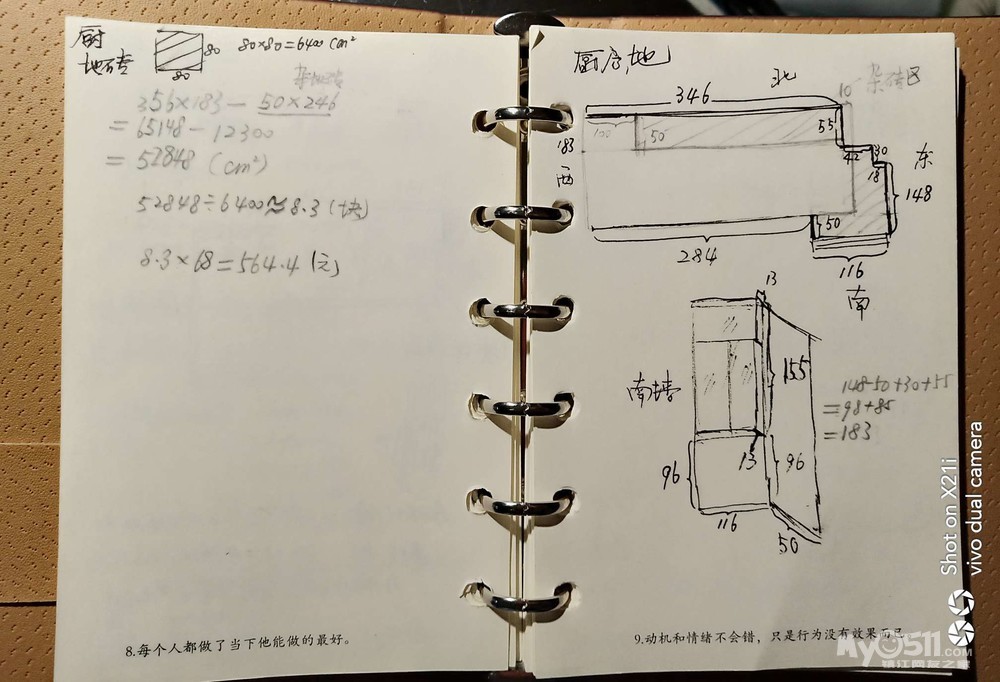 厨
地砖
80
80
80×80=6400 cm²
杂地砖
356×183－50×246
=65148－12300
=52848 (cm²)
52848÷6400≈8.3(块)
8.3×68=564.4(元)
8.每个人都做了当下他能做的最好。
厨房,地
北
杂砖区
346
10
100
50
55
183
西
42
30
18
东
148
50
284
116
南
13
南墙
155
148-50+30+55
=98+85
=183
13
96
96
116
50
9.动机和情绪不会错，只是行为没有效果而已
Shot on X21i
vivo dual camera
My0511.COM
镇江网友之家